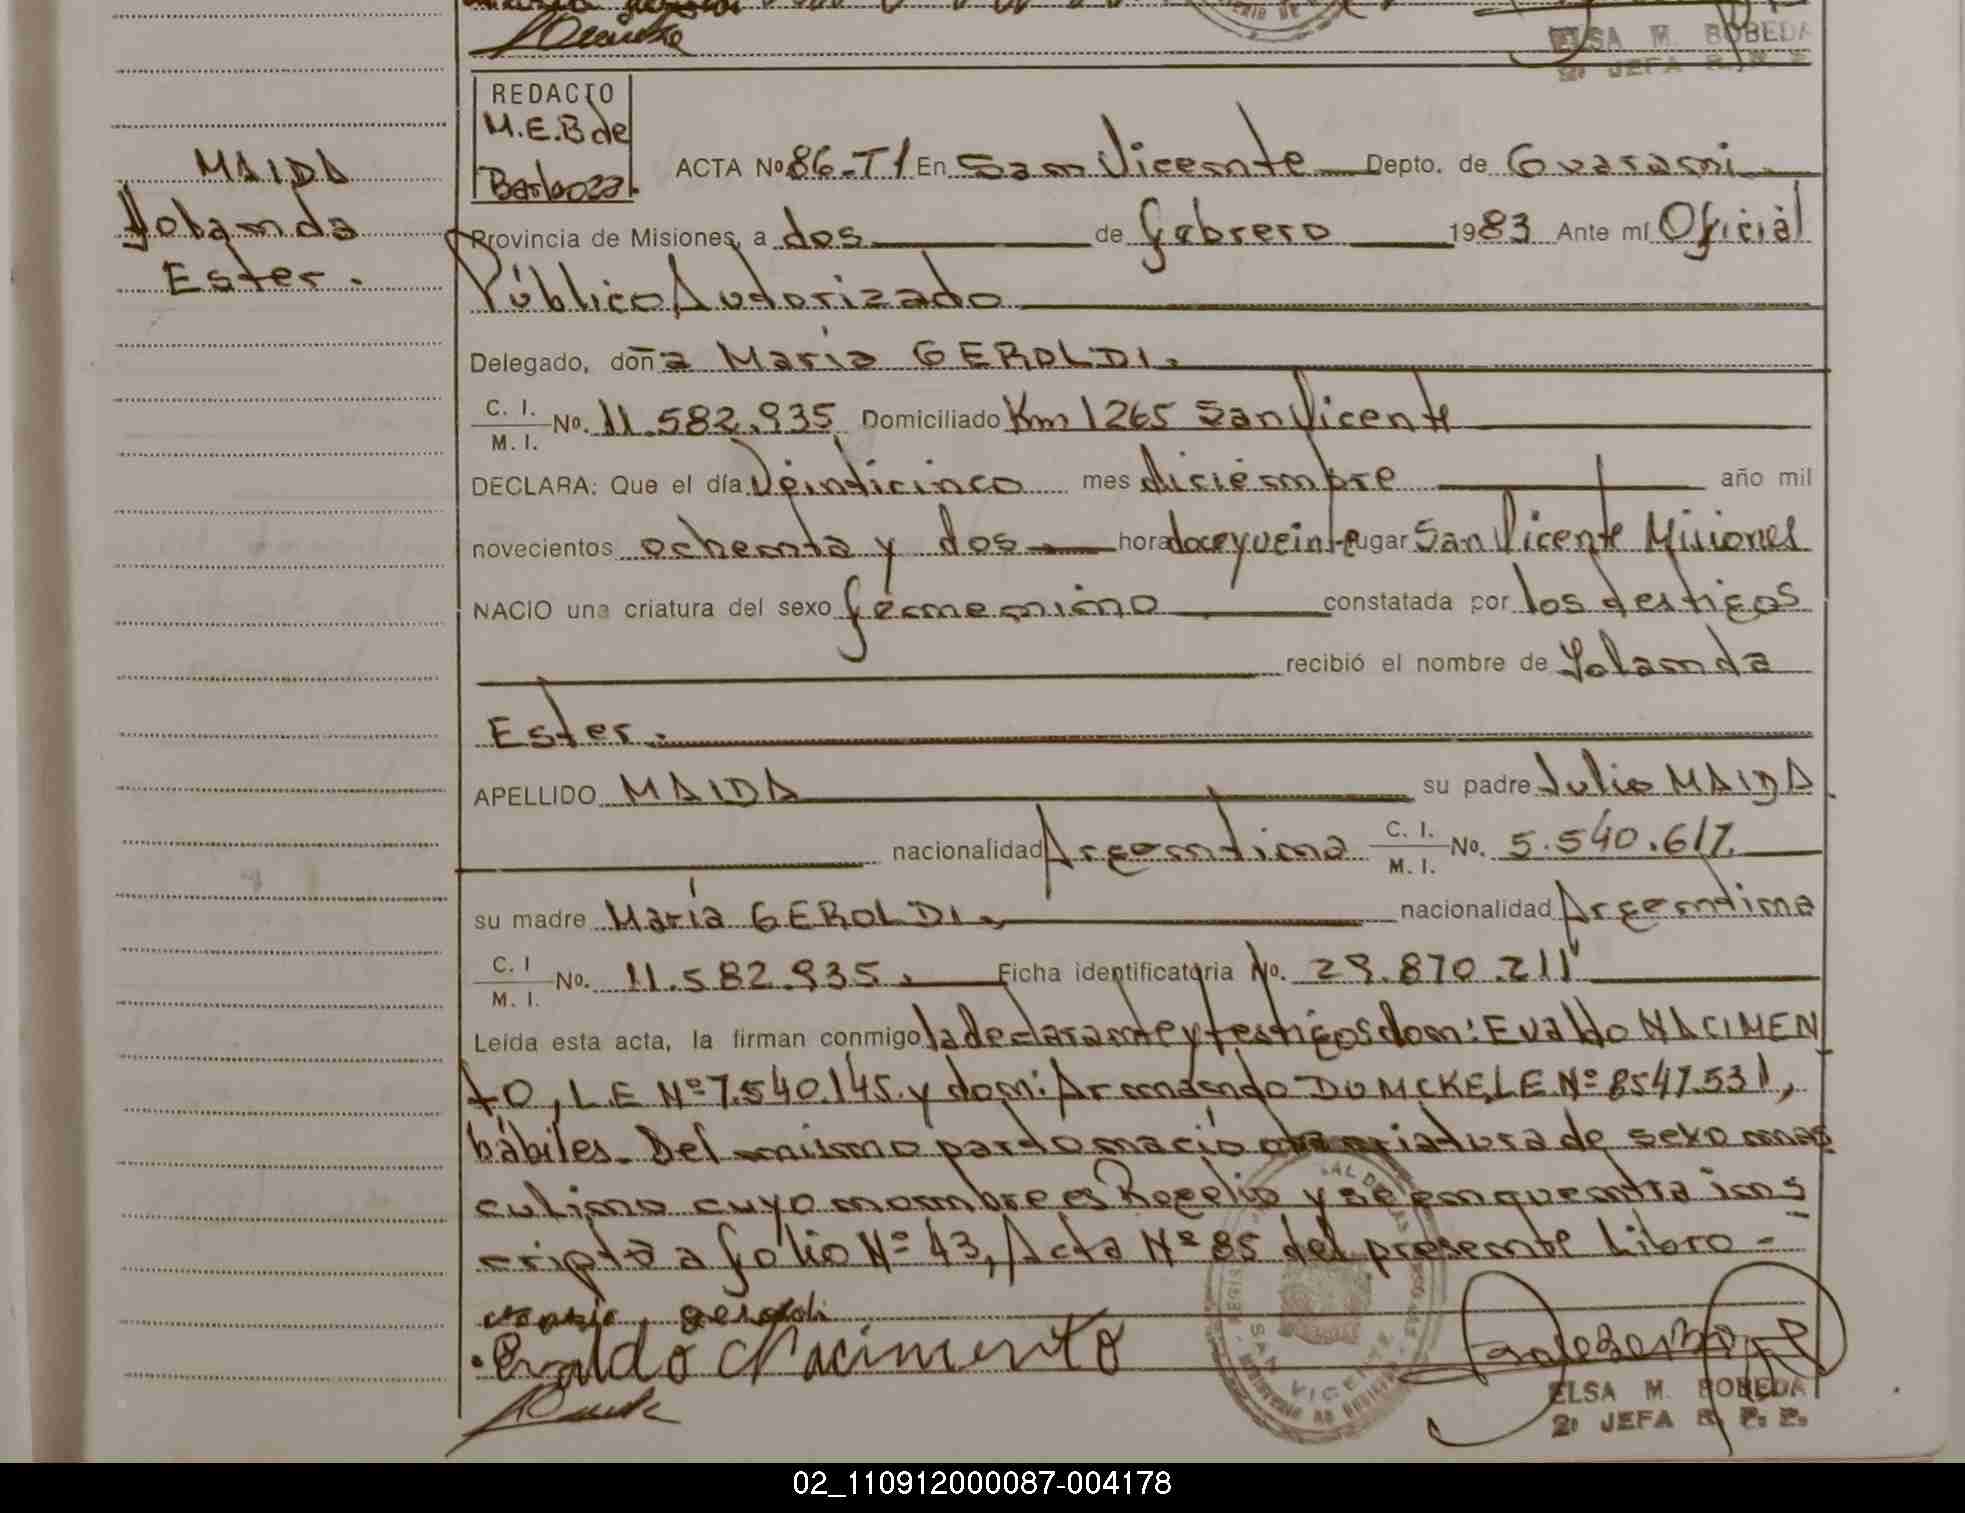 ELSA M. BOBEDA
2º JEFA R. P. P.
REDACTO
M.E.B de
Barboza.
MAIDA
Yolanda
Ester.
ACTA Nº 86-T1 En San Vicente Depto. de Guarani
Provincia de Misiones, a dos de febrero 1983 Ante mí Oficial
Público Autorizado
Delegado, doña María GEROLDI.
C. I. / M. I. Nº. 11.582.935 Domiciliado Km 1265 San Vicente
DECLARA: Que el día Veinticinco mes diciembre año mil
novecientos ochenta y dos hora doce y veinte lugar San Vicente Misiones
NACIO una criatura del sexo femenino constatada por los testigos
recibió el nombre de Yolanda
Ester.
APELLIDO MAIDA su padre Julio MAIDA.
nacionalidad Argentina C. I. / M. I. Nº. 5.540.617.
su madre María GEROLDI. nacionalidad Argentina
C. I / M. I. Nº. 11.582.935. Ficha identificatoria No. 29.870.211
Leída esta acta, la firman conmigo la declarante y testigos don: Evaldo NACIMEN
TO, L.E Nº 7.540.145. y don: Armando DUMCKE, L E Nº 8547.531,
hábiles. Del mismo parto nació criatura de sexo mas
culino cuyo nombre es Rogelio y se enquentra ins
cripto a folio Nº 43, Acta Nº 85 del presente Libro -
maria geroldi
Evaldo Nacimento
SAN VICENTE
ELSA M. BOBEDA
2º JEFA R. P. P.
02_110912000087-004178